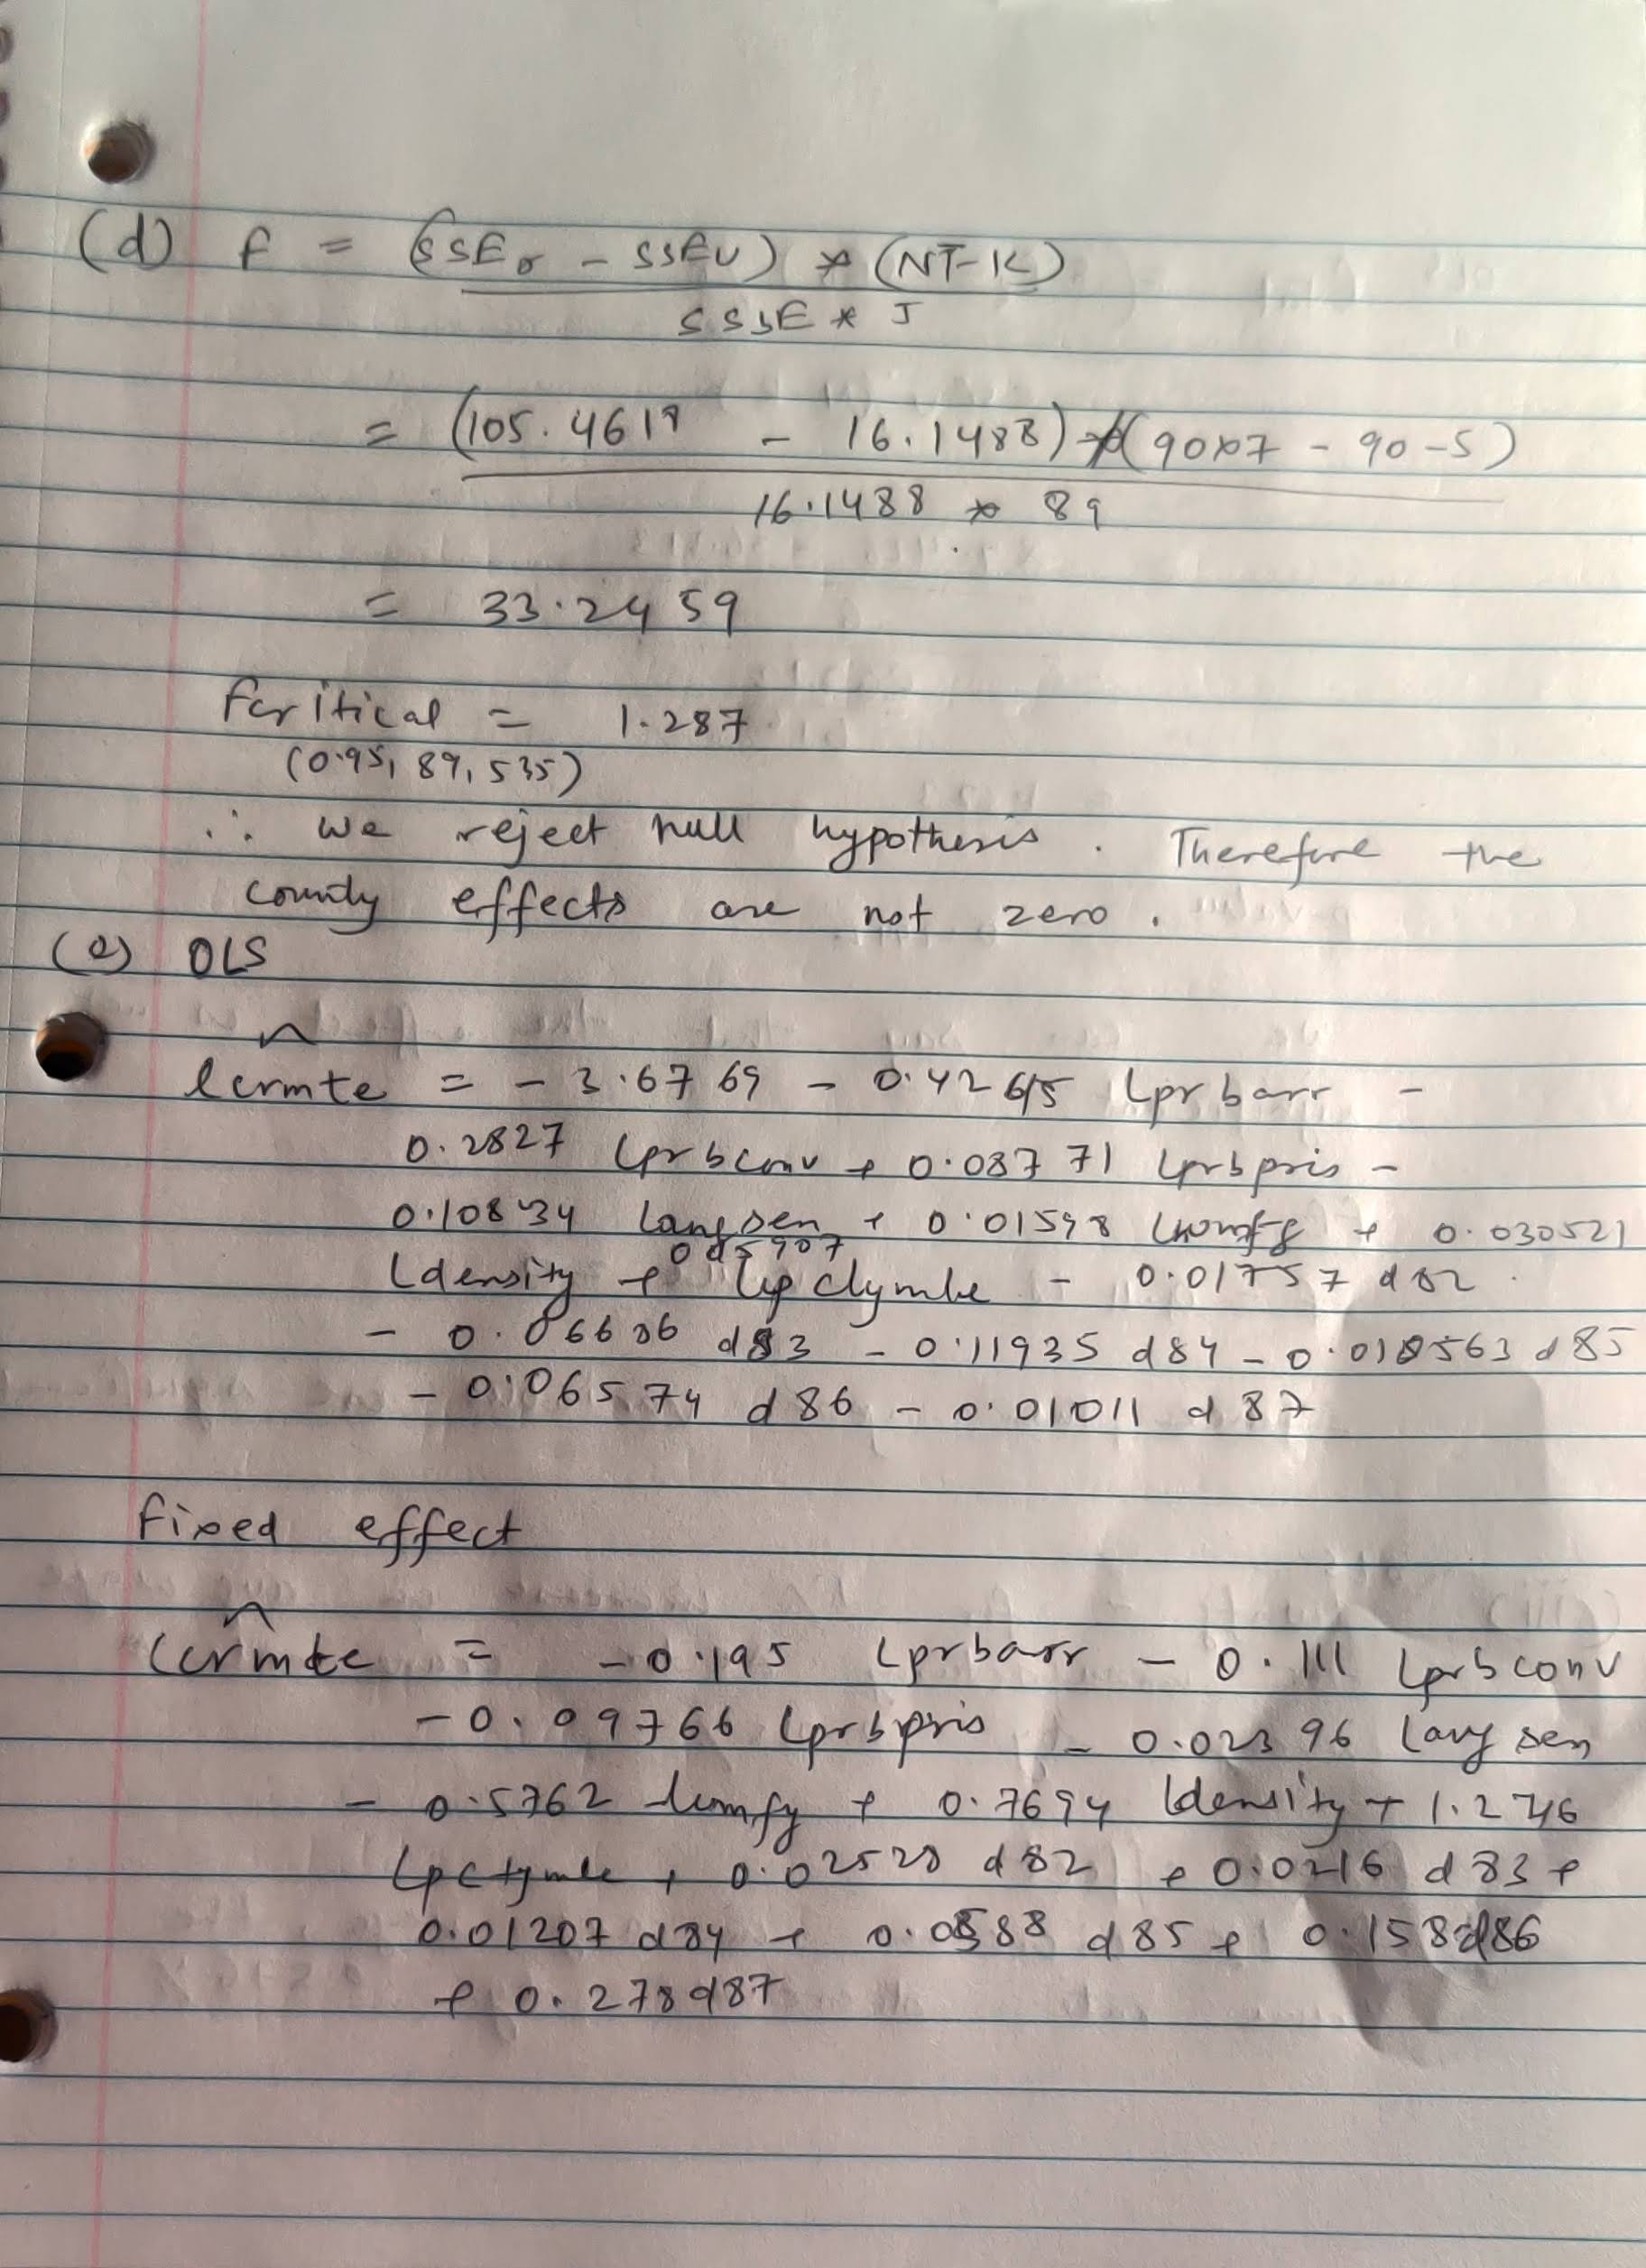 (d) F = (SSEr - SSEU) * (NT-K)
SSE * J
= (105.4618 - 16.1488) * (90*7 - 90 - 5)
16.1488 * 89
= 33.2459
Fcritical = 1.287
(0.95, 89, 535)
∴ We reject null hypothesis. Therefore the
county effects are not zero.
(e) OLS
lcrmte = -3.6769 - 0.42615 lprbarr -
0.2827 lprbconv + 0.08771 lprbpris -
0.10834 lavgsen + 0.01598 + 0.030521
0.5907
ldensity + - 0.01757 d82
- 0.06636 d83 - 0.11935 d84 - 0.010563 d85
- 0.06574 d86 - 0.01011 d87
Fixed effect
lcrmte = -0.195 lprbarr - 0.111 lprbconv
-0.09766 lprbpris - 0.02396 lavgsen
- 0.5762 + 0.7694 ldensity + 1.2746
+ 0.02528 d82 + 0.0216 d83 +
0.01207 d84 + 0.0588 d85 + 0.158 d86
+ 0.278 d87